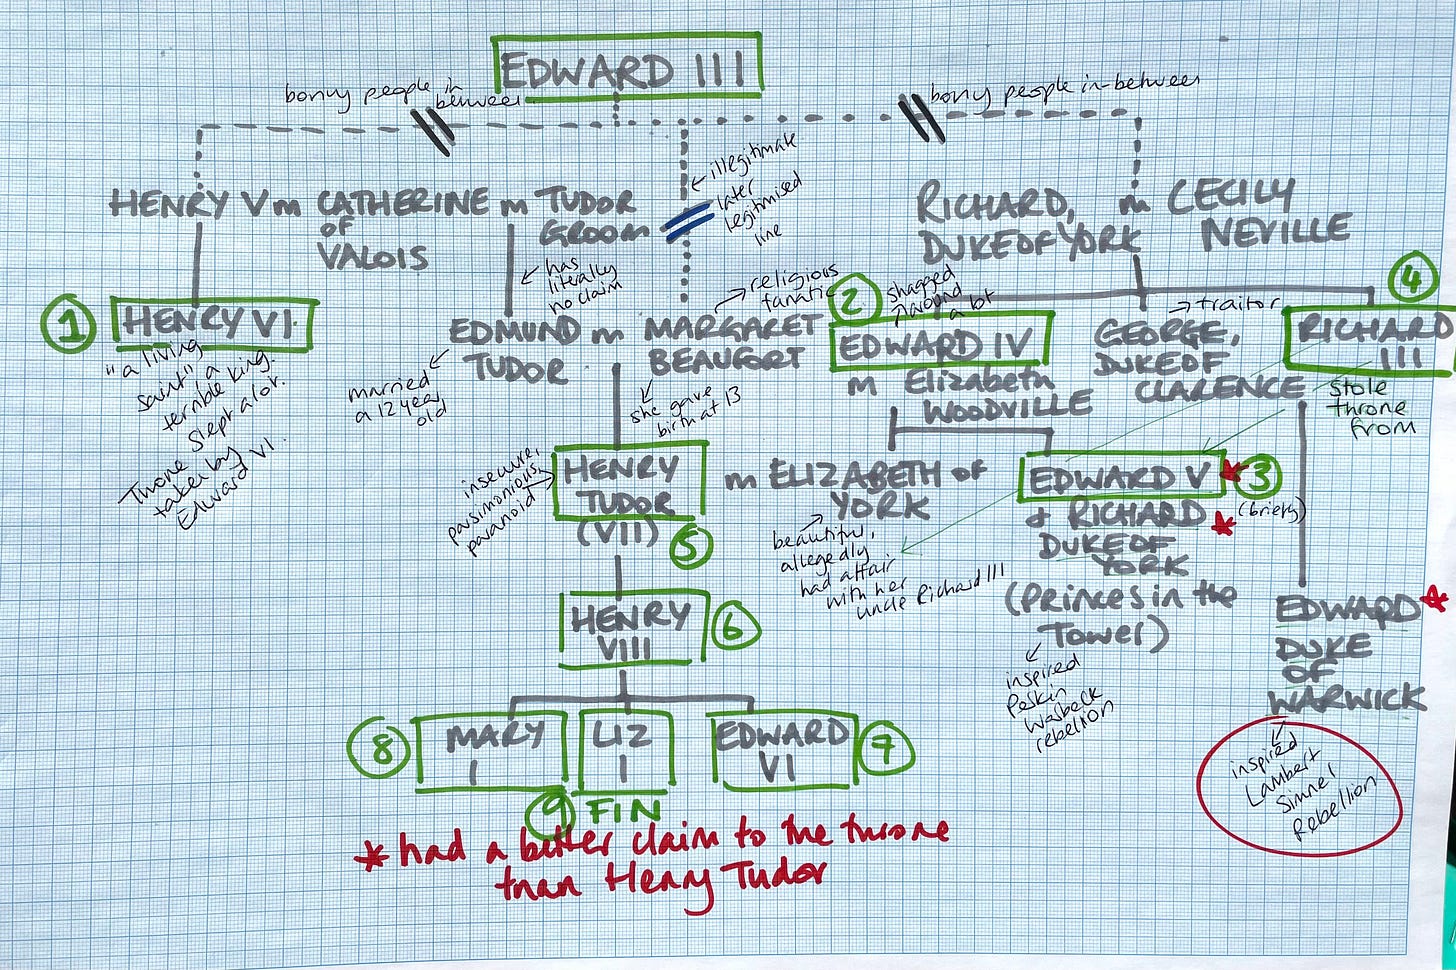 EDWARD III
boring people in
between
boring people in-between
illegitimate
later
legitimised
line
HENRY V m CATHERINE
OF
VALOIS
m TUDOR
GROOM
RICHARD,
DUKE OF YORK
m CECILY
NEVILLE
has
literally
no claim
religious
fanatic
1
HENRY VI
"a living
saint" a
terrible king.
Slept a lot.
Throne
taken by
Edward VI.
EDMUND m
TUDOR
MARGARET
BEAUFORT
married
a 12 year
old
she gave
birth at 13
2
shagged
around
a lot
EDWARD IV
m Elizabeth
WOODVILLE
traitor
GEORGE,
DUKE OF
CLARENCE
4
RICHARD
III
Stole
throne
from
insecure,
parsimonious,
paranoid
HENRY
TUDOR
(VII)
5
m ELIZABETH OF
YORK
beautiful,
allegedly
had affair
with her
uncle Richard III
EDWARD V *
3
(briefly)
& RICHARD *
DUKE OF
YORK
(Princes in the
Tower)
inspired
Perkin
Warbeck
rebellion
EDWARD *
DUKE
OF
WARWICK
inspired
Lambert
Simnel
Rebellion
HENRY
VIII
6
8
MARY
I
LIZ
I
EDWARD
VI
7
9
FIN
* had a better claim to the throne
than Henry Tudor